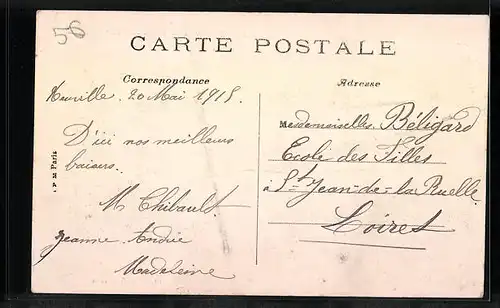 56
CARTE POSTALE
Correspondance
Adresse
Neuville. 20 Mai 1915.
D'ici nos meilleurs
baisers.
M Thibault
Jeanne Andrée
Madeleine
Mesdemoiselles Béligard
Ecole des Filles
à St Jean-de-la-Ruelle
Loiret
Paris